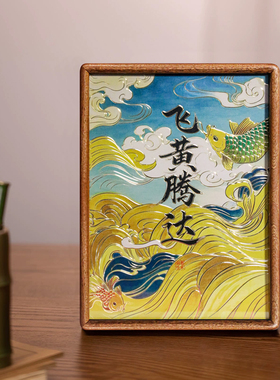 飞黄腾达